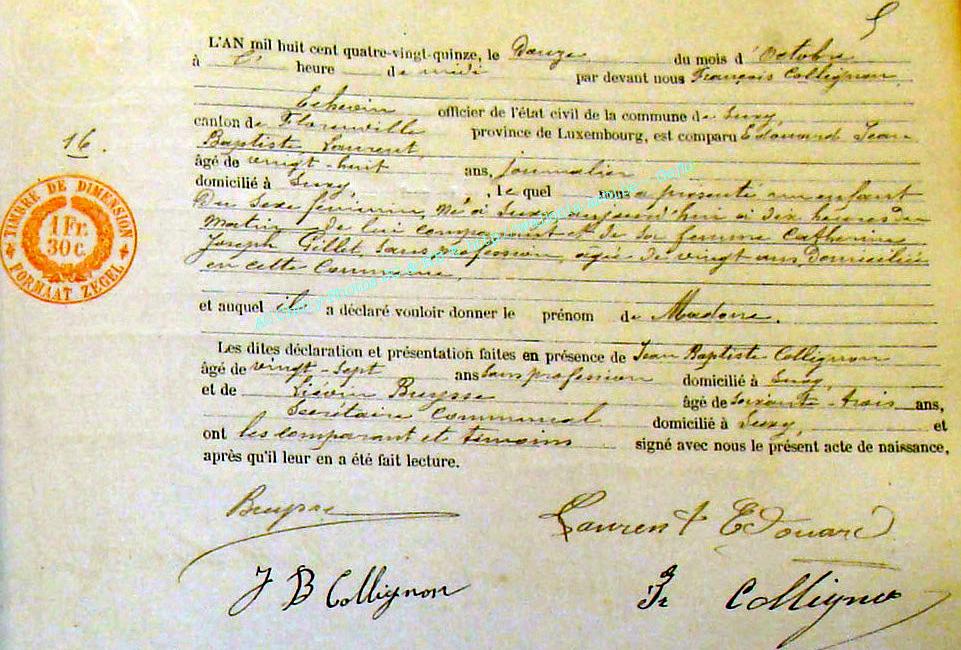 5
L'AN mil huit cent quatre-vingt-quinze, le Douze du mois d'octobre
à heure de midi par devant nous François Collignon,
Echevin officier de l'état civil de la commune de Suxy,
canton de Florenville province de Luxembourg, est comparu Edouard Jean
Baptiste Laurent,
16.
âgé de vingt-huit ans, journalier
domicilié à Suxy, , le quel nous a présenté un enfant
Du Sexe féminin, né à Suxy aujourd'hui à dix heures du
Matin de lui comparant et de son femme Catherine
Joseph Gillet, sans profession, agée de vingt ans Domiciliée
en cette Commune,
et auquel il a déclaré vouloir donner le prénom de Madone.
Les dites déclaration et présentation faites en présence de Jean Baptiste Collignon
âgé de vingt-sept ans sans profession domicilié à Suxy,
et de Liévin Buysse âgé de soixante-trois ans,
Secrétaire Communal domicilié à Suxy, et
ont les comparant et témoins signé avec nous le présent acte de naissance,
après qu'il leur en a été fait lecture.
TIMBRE DE DIMENSION
1 Fr.
30c.
FORMAAT ZEGEL
Buysse
Laurent Edouard
J B Collignon
Fr Collignon